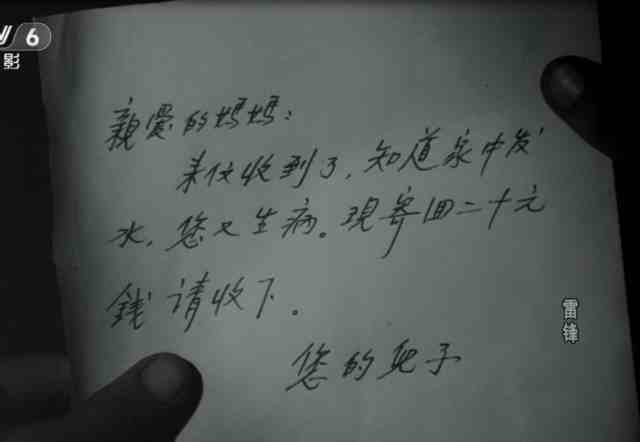 V 6
影
親愛的妈妈：
来信收到了，知道家中发
水，您又生病。现寄回二十元
錢请收下。
您的兒子
雷锋